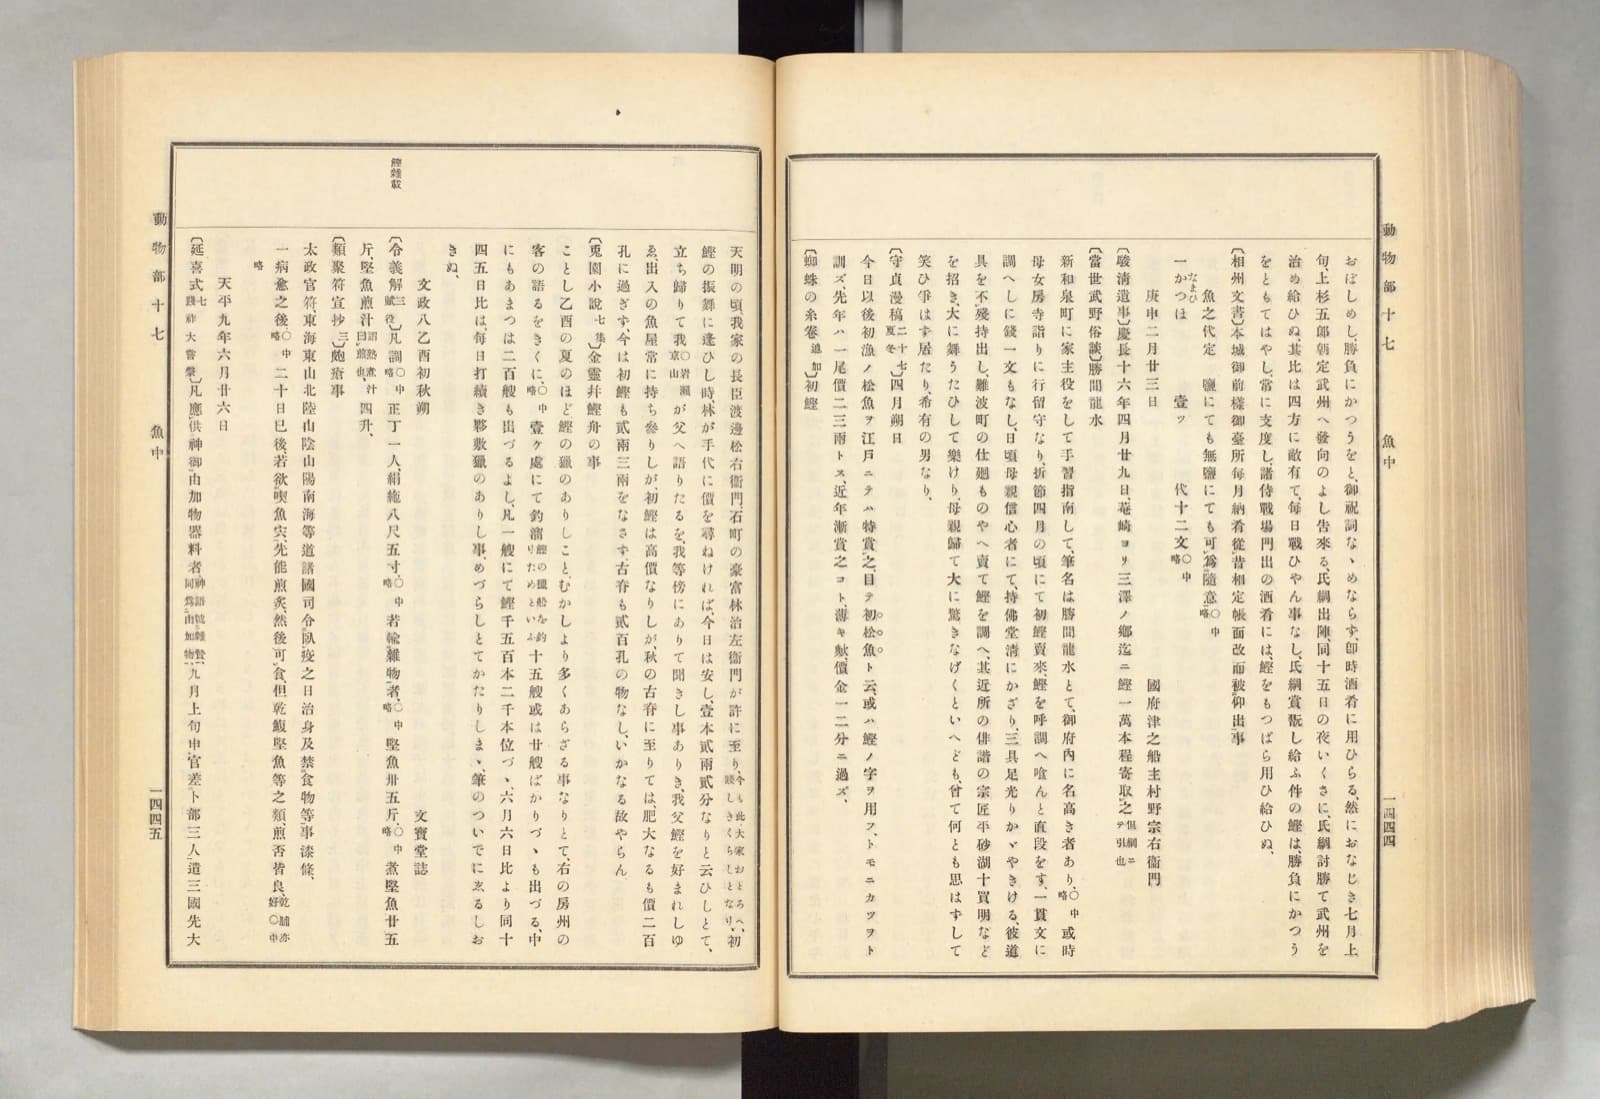 動物部十七　魚中
一四四四
おぼしめし、勝負にかつうをと、御祝詞なゝめならず、即時酒肴に用ひらる、然におなじき七月上
旬、上杉五郎朝定武州へ發向のよし告來る、氏綱出陣、同十五日の夜いくさに、氏綱討勝て武州を
治め給ひぬ、其比は四方に敵有て、毎日戰ひやん事なし、氏綱賞翫し給ふ件の鰹は、勝負にかつう
をともてはやし、常に支度し、諸侍戰場門出の酒肴には、鰹をもつぱら用ひ給ひぬ、
〔相州文書〕本城御前樣御臺所毎月納肴從昔相定帳面改而被仰出事
魚之代定　鹽にても無鹽にても可爲隨意、○中略
なまひ
一かつほ　壹ッ　代十二文○中略
庚申二月廿三日　國府津之船主村野宗右衞門
〔駿淸遺事〕慶長十六年四月廿九日、菴崎ヨリ三澤ノ鄕迄ニ鰹一萬本程寄取之但綱ニテ引也
〔當世武野俗談〕勝間龍水
新和泉町に家主役をして手習指南して、筆名は勝間龍水とて、御府內に名高き者あり、○中略或時
母女房寺詣りに行留守なり、折節四月の頃にて初鰹賣來、鰹を呼調へ喰んと直段をす、一貫文に
調へしに錢一文もなし、日頃母親信心者にて、持佛堂淸にかざり、三具足光りかゞやきける、彼道
具を不殘持出し、難波町の仕廻ものやへ賣て鰹を調へ、其近所の俳諧の宗匠平砂湖十買明など
を招き、大に舞うたひして樂けり、母親歸て大に驚きなげくといへども、曾て何とも思はずして
笑ひ爭はず居たり、希有の男なり、
〔守貞漫稿二十七夏冬〕四月朔日
今日以後初漁ノ松魚ヲ江戶ニテハ特賞之、目テ初松魚ト云、或ハ鰹ノ字ヲ用フ、トモニカツヲト
訓ズ、先年ハ一尾價二三兩トス、近年漸賞之コト、薄キ歟價金一二分ニ過ズ、
〔蜘蛛の糸卷追加〕初鰹
天明の頃、我家の長臣渡邊松右衞門、石町の豪富林治左衞門が許に至り、今も此大家おとろへ、初
鰹の振舞に逢ひし時、林が手代に價を尋ねければ、今日は安し、壹本貳兩貳分なりと云ひしとて、
立ち歸りて我○岩瀨京山が父へ語りたるを、我等傍にありて聞きし事ありき、我父鰹を好まれしゆ
ゑ、出入の魚屋常に持ち參りしが、初鰹は高價なりしが、秋の古脊に至りては、肥大なるも價二百
孔に過ぎず、今は初鰹も貳兩三兩をなさず、古脊も貳百孔の物なし、いかなる故やらん
〔兎園小說七集〕金靈幷鰹舟の事
ことし乙酉の夏のほど鰹の獵のありしこと、むかしより多くあらざる事なりとて、右の房州の
客の語るをきくに、○中略壹ヶ處にて釣溜鰹の獵船を釣りためといふ十五艘或は廿艘ばかりづゝも出づる、中
にもあまつは二百艘も出づるよし、凡一艘にて鰹千五百本二千本位づゝ、六月六日比より同十
四五日比は、每日打續き夥敷獵のありし事、めづらしとてかたりしまゝ、筆のついでにゑるしお
きぬ、
文政八乙酉初秋朔　文寳堂誌
鰹雜載
〔令義解三賦役〕凡調○中略正丁一人、絹絁八尺五寸、○中略若輸雜物者、○中略堅魚卅五斤、○中略煮堅魚廿五
斤、堅魚煎汁謂熟煮汁曰煎也、四升、
〔類聚符宣抄三〕皰瘡事
太政官符、東海東山北陸山陰山陽南海等道諸國司、合臥疫之日治身及禁食物等事漆條、
一病愈之後○中略二十日已後、若欲喫魚宍、先能煎炙、然後可食、但乾鰒堅魚等之類、煎否皆良、乾脯亦好、○中
略
天平九年六月廿六日
〔延喜式七踐祚大嘗祭〕凡應供神御由加物器料者神語號雜贄同爲由加物、九月上旬申官、差卜部三人遣三國先大
動物部十七　魚中
一四四五